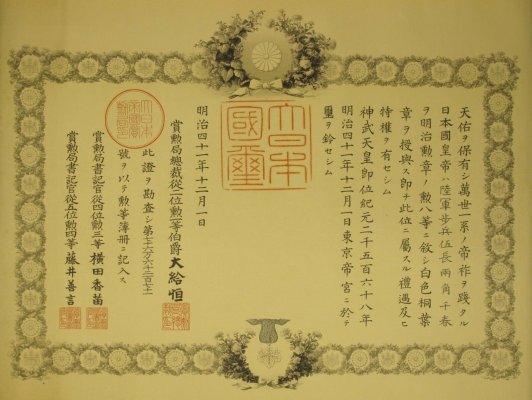 天佑ヲ保有シ萬世一系ノ帝祚ヲ踐タル
日本國皇帝ハ陸軍歩兵伍長兩角千春
ヲ明治勲章ノ勲八等ニ敍シ白色桐葉
章ヲ授與ス即チ此位ニ屬スル禮遇及ヒ
特權ヲ有セシム
神武天皇即位紀元二千五百六十八年
明治四十一年十二月一日東京帝宮ニ於テ
璽ヲ鈐セシム
大日本國璽
明治四十一年十二月一日
賞勲局總裁從二位勲一等伯爵大給恒
此證ヲ勘査シ第七十六万六千三百七十二
號ヲ以テ勲等簿册ニ記入ス
賞勲局書記官從四位勲三等横田香苗
賞勲局書記官從五位勲四等藤井善言